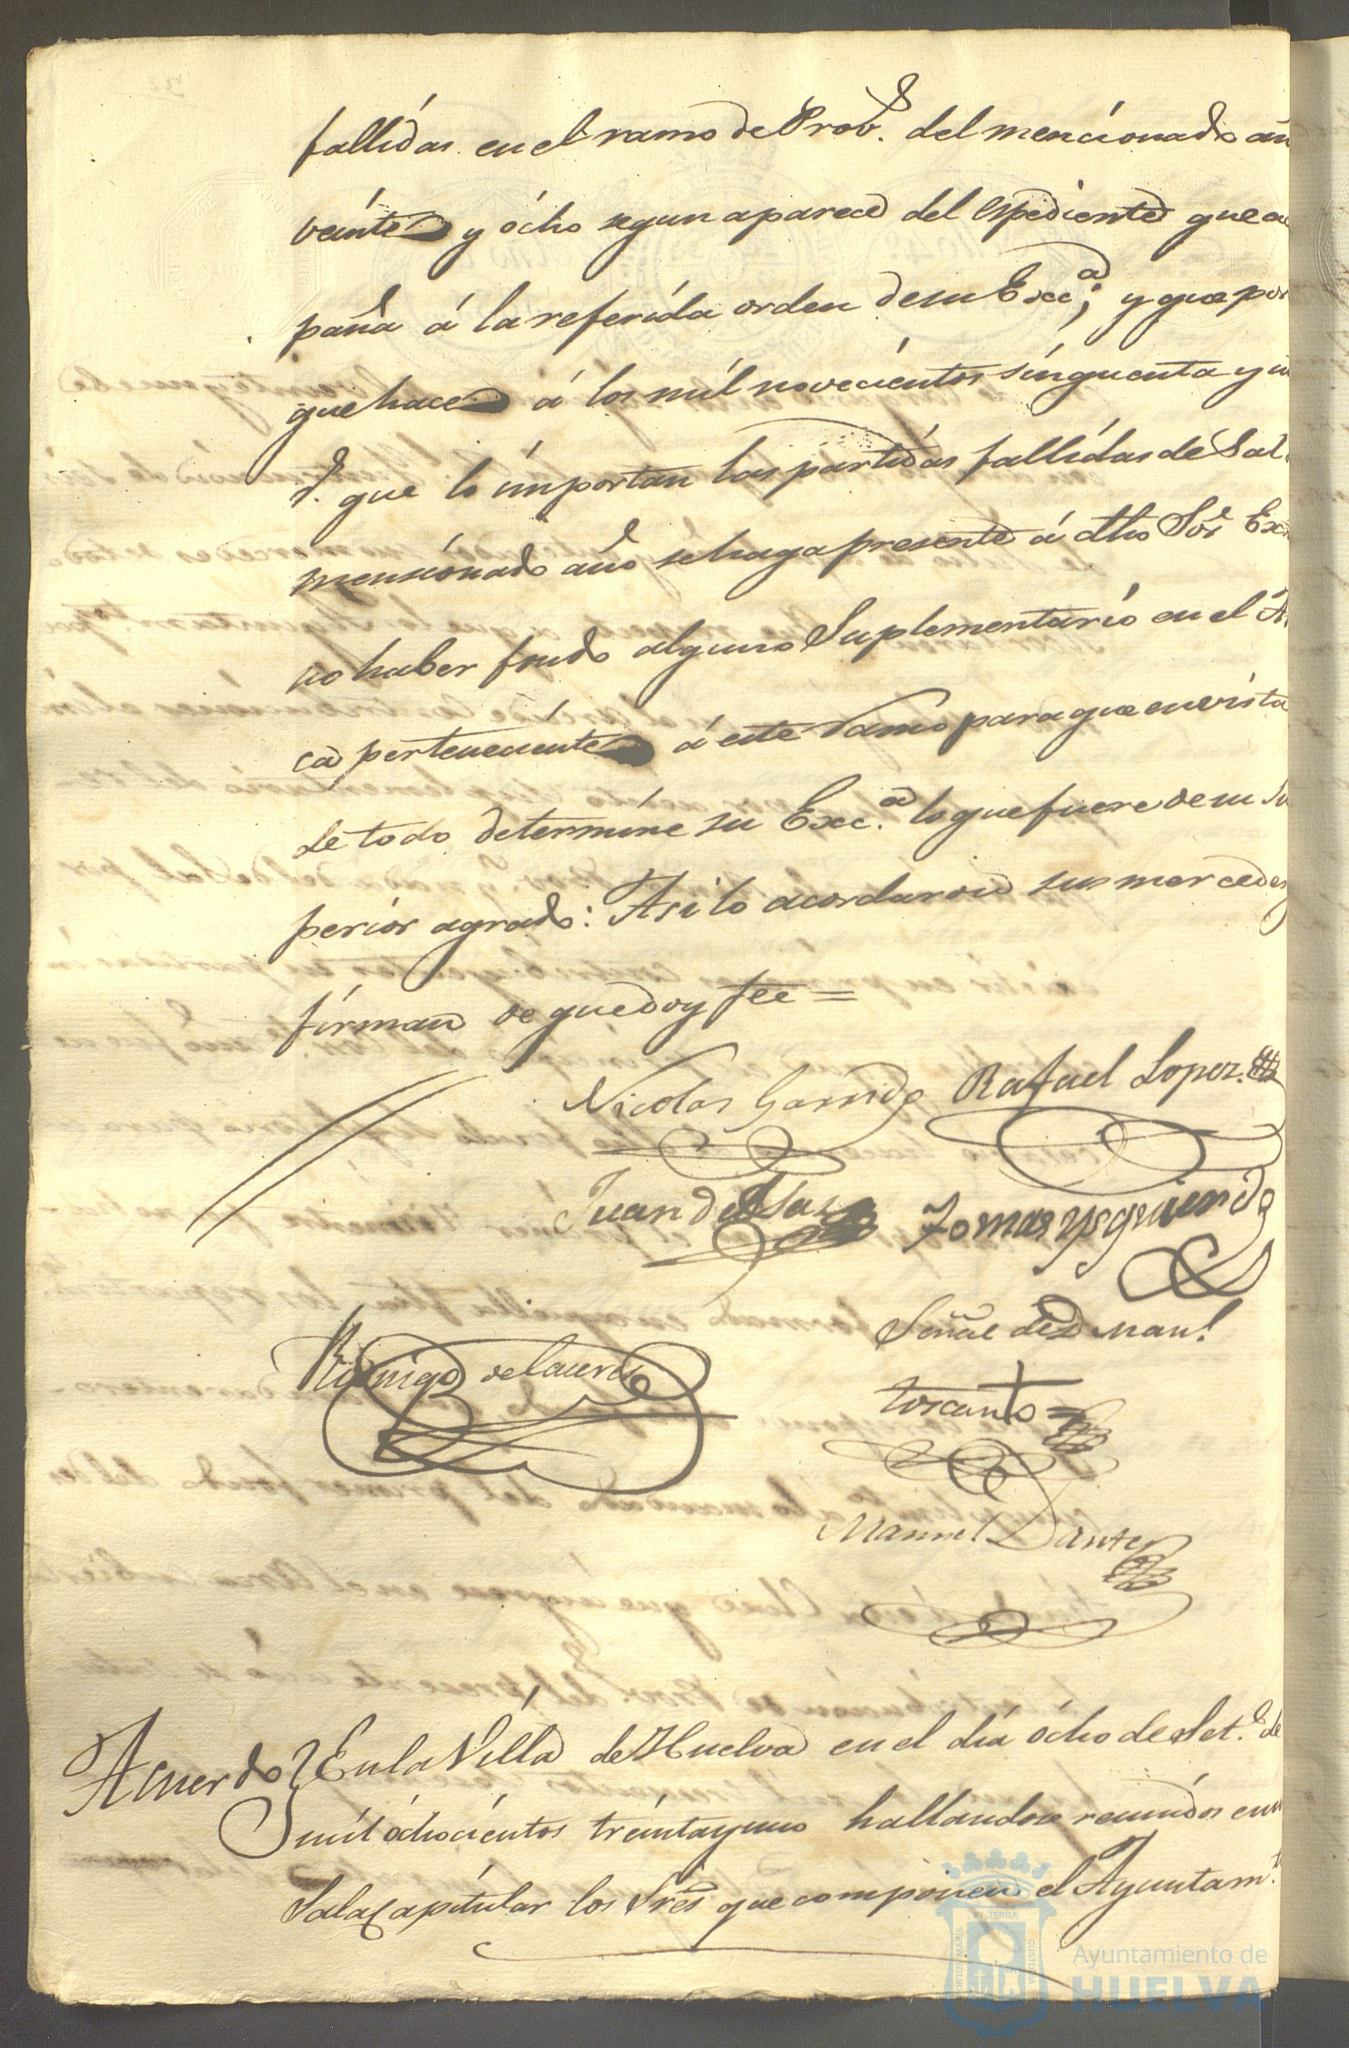 fallidas en el ramo de Prov.s del mencionado añ
veinte y ócho segun aparece del espediente que a
paña á la referida orden de su Exc.a; y que por
que hace á los mil novecientos sinquenta y u
r.s que lo importan las partidas fallidas de Sal
mensionado año se haga presente á dho Sor Ex
no haber fondo alguno Suplementario en el A
ca perteneciente á este Ramo para que en vista
de todo determine su Exc.a lo que fuere de su Su
perior agrado: Asi lo acordaron sus mercedes
firman de que doy fee =
Nicolas Garrido Rafael Lopez
Juan de Tomas ysquierdo
Señal de Man.l
Rodrigo de la cerda
toscano
Manuel Dante
Acuerdo } En la Villa de Huelva en el dia ócho de Set.e de
mil óchocientos treinta y uno hallandose reunidos en
Sala Capitular los Sres que componen el Ayuntam.to
Ayuntamiento de
HUELVA